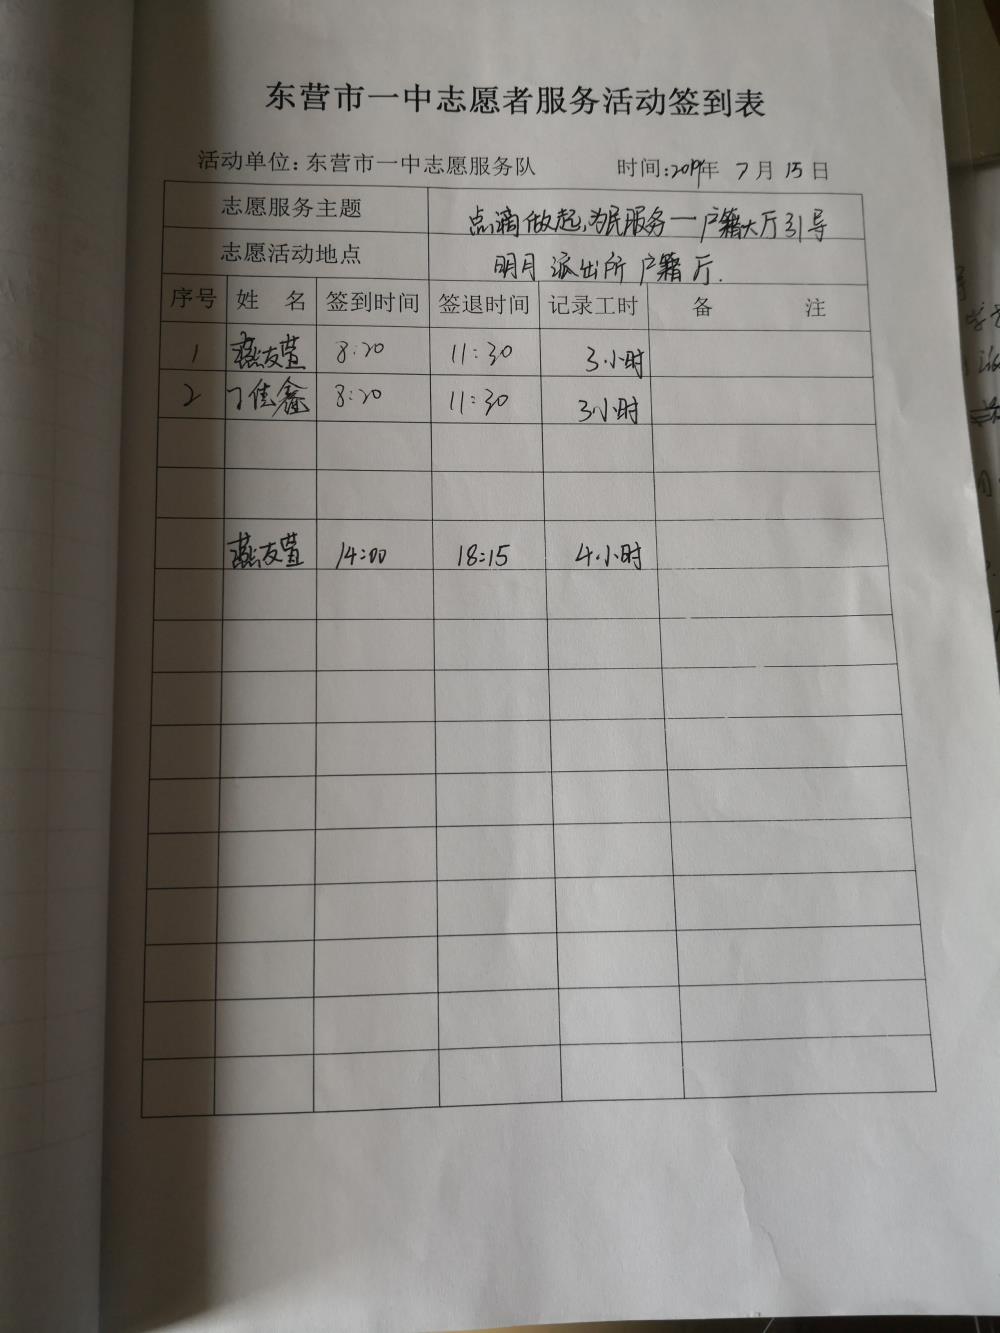 东营市一中志愿者服务活动签到表
活动单位:东营市一中志愿服务队 时间:2019年 7月15日
志愿服务主题 点滴做起,为民服务—户籍大厅引导
志愿活动地点 明月派出所户籍厅.
序号 姓 名 签到时间 签退时间 记录工时 备 注
1 燕友萱 8:20 11:30 3小时
2 丁佳鑫 8:20 11:30 3小时
燕友萱 14:00 18:15 4小时